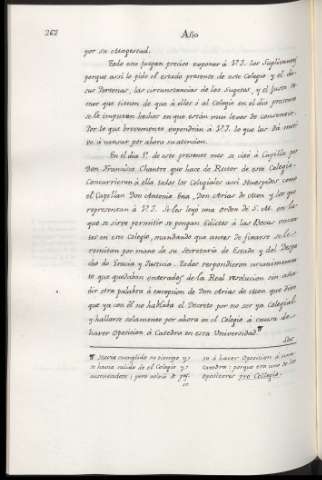 262
Año
por su Magestad.
Todo esto juzgan preciso exponer à V.I. los Suplicantes
porque assi lo pide el estado presente de este Colegio y el de
sus Personas, las circunstancias de los Sugetos, y el justo te-
mor que tienen de que à ellos ò al Colegio en el dia presente
se le imputen hechos en que están muy lexos de consentir.
Por lo que brevemente expondrán à V.I. lo que les ha movi-
do à cansar por ahora su atencion.
En el dia 1º de este presente mes se citó à Capilla por
Don Francisco Chantre que hace de Rector de este Colegio.
Concurrieron à ella todos los Colegiales assi Huespedes como
el Capellan Don Antonio Bea, Don Arias de Oton y los que
representan à V.I. Se les leyó una orden de S.M. en la
que se sirve permitir se pongan Edictos à las Becas vacan-
tes en este Colegio, mandando que antes de fixarse se le
remitan por mano de su Secretario de Estado y del Despa
cho de Gracia y Justicia. Todos respondieron unanimemen
te que quedaban enterados de la Real resolucion sin aña-
dir otra palabra à excepcion de Don Arias de Oton que dixo
que ya con él no hablaba el Decreto por no ser ya Colegial
y hallarse solamente por ahora en el Colegio à causa de
hacer Oposicion à Catedra en esta Universidad
Havia cumplido su tiempo y
se havia salido de el Colegio y
à hacer Oposicion à una
Catedra: porque era uno de los
Opositores pro Collegio.